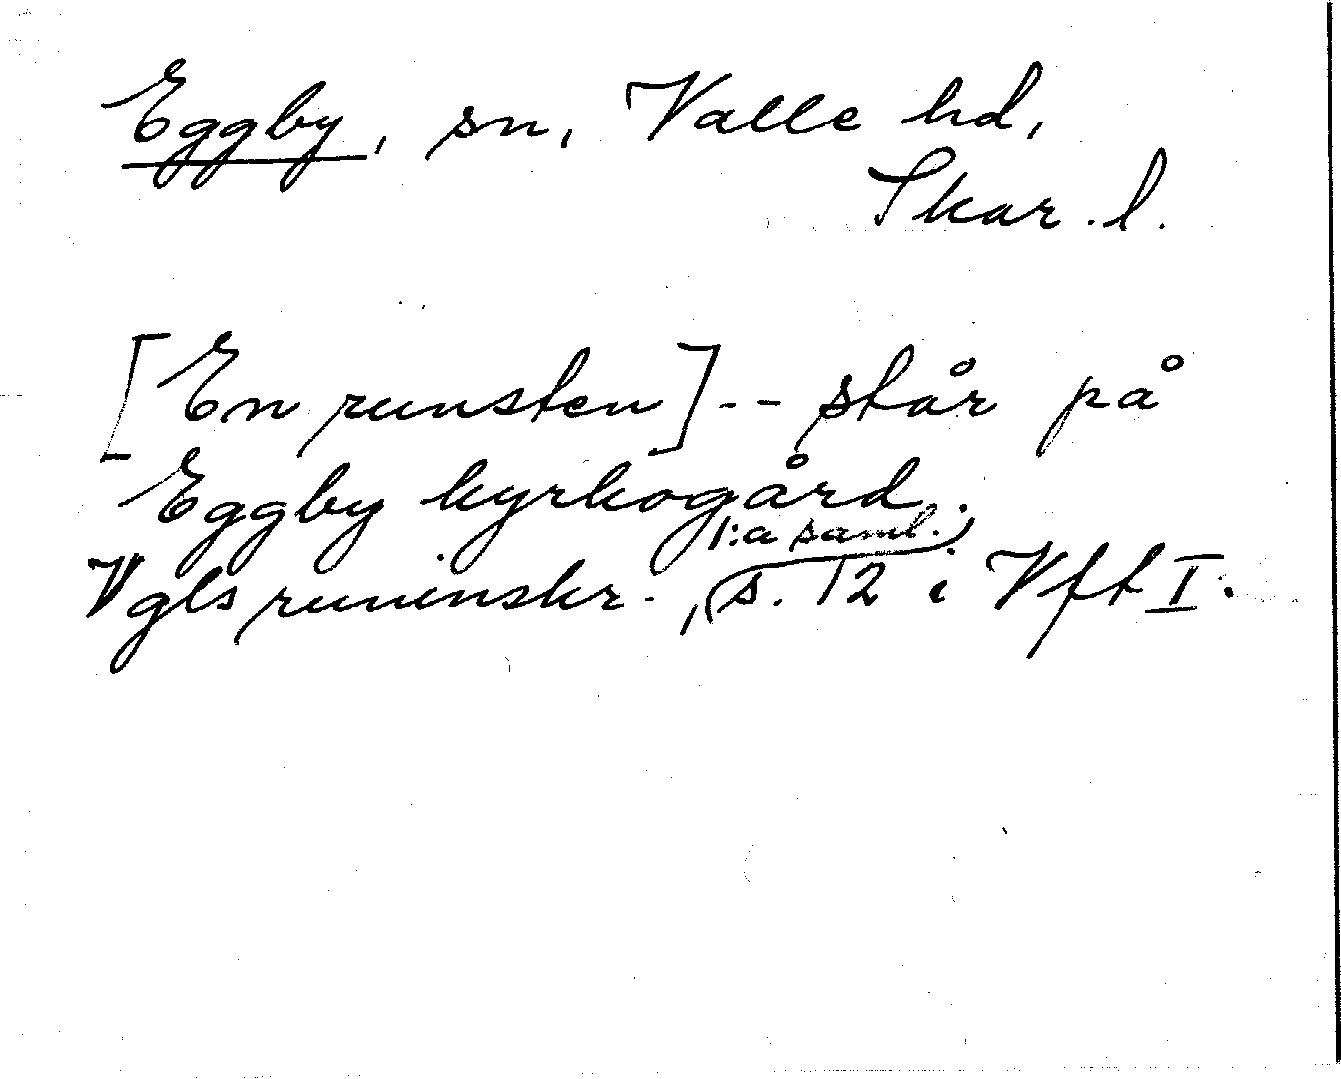 Eggby, sn, Valle hd,
Skar. l.
[En runsten] -- står på
Eggby kyrkogård.
1:a saml.
Vgls runinskr., s. 12 i Vft I.